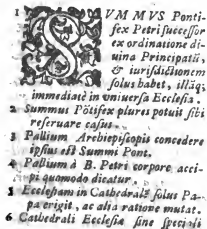 1 SVMMVS Ponti-
fex Petri ſucceſſor
ex ordinatione di-
uina Principatũ,
& iuriſdictionem
ſolus habet, illãq;
immediatè in vniuerſa Eccleſia.
2 Summus Põtifex plures potuit ſibi
reſeruare caſus.
3 Pallium Archiepiſcopis concedere
ipſius eſt Summi Pont.
4 Pallium à B. Petri corpore acci-
pi quomodo dicatur.
5 Eccleſiam in Cathedralẽ ſolus Pa-
pa erigit, ac alia ratione mutat.
6 Cathedrali Eccleſiæ ſine ſpeciali